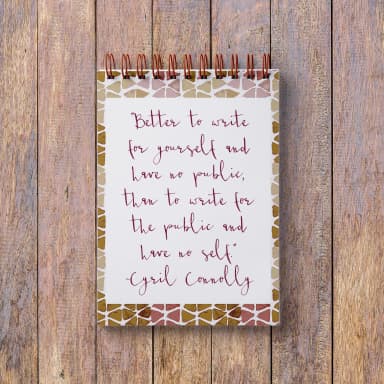 "Better to write
for yourself and
have no public,
than to write for
the public and
have no self."
-Cyril Connolly